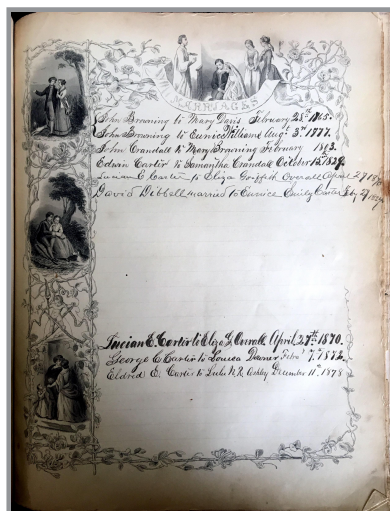 MARRIAGES
John Browning to Mary Davis February 28th 1765.
John Browning to Eunice Williams Augt 3rd 1777.
John Crandall to Mary Browning February 1803.
Edwin Carter to Samantha Crandall October 15th 1829.
Lucian E Carter to Eliza Griffith Overall April 27
David Dibbell married to Eunice Emily Carter Feby 27
Lucian E. Carter to Eliza G. Overall April 27th 1870.
George C Carter to Louisa Deaner Feb 7. 1872.
Eldred E. Carter to Lulu N R Ashby December 11th 1878